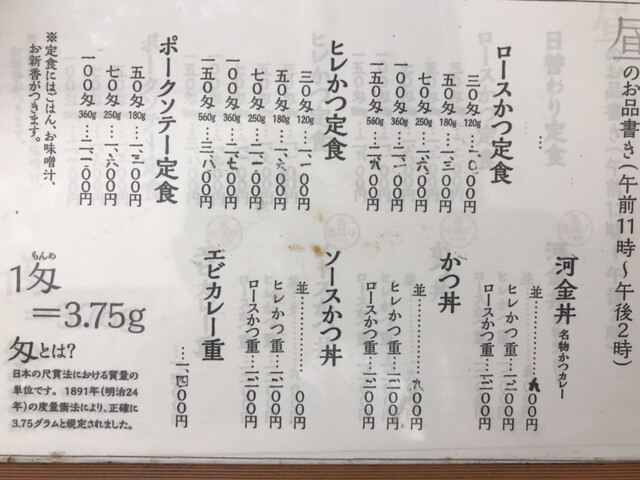 昼のお品書き(午前11時～午後2時)
ロースかつ定食
三〇匁120g…一、〇〇〇円
五〇匁180g…一、三〇〇円
七〇匁250g…一、六〇〇円
一〇〇匁360g…二、一〇〇円
一五〇匁560g…二、九〇〇円
ヒレかつ定食
三〇匁120g…一、一〇〇円
五〇匁180g…一、六〇〇円
七〇匁250g…二、一〇〇円
一〇〇匁360g…二、七〇〇円
一五〇匁560g…三、八〇〇円
ポークソテー定食
五〇匁180g…一、三〇〇円
七〇匁250g…一、六〇〇円
一〇〇匁360g…二、一〇〇円
※定食にはごはん、お味噌汁、
お新香がつきます。
河金丼 名物かつカレー
並…………九〇〇円
ヒレかつ重…一、二〇〇円
ロースかつ重…一、二〇〇円
かつ丼
並…………九〇〇円
ヒレかつ重…一、二〇〇円
ロースかつ重…一、二〇〇円
ソースかつ丼
並…………〇〇円
ヒレかつ重…一、二〇〇円
ロースかつ重…一、二〇〇円
エビカレー重
…一、四〇〇円
もんめ
1匁
＝3.75g
匁とは?
日本の尺貫法における質量の
単位です。1891年(明治24
年)の度量衡法により、正確に
3.75グラムと規定されました。